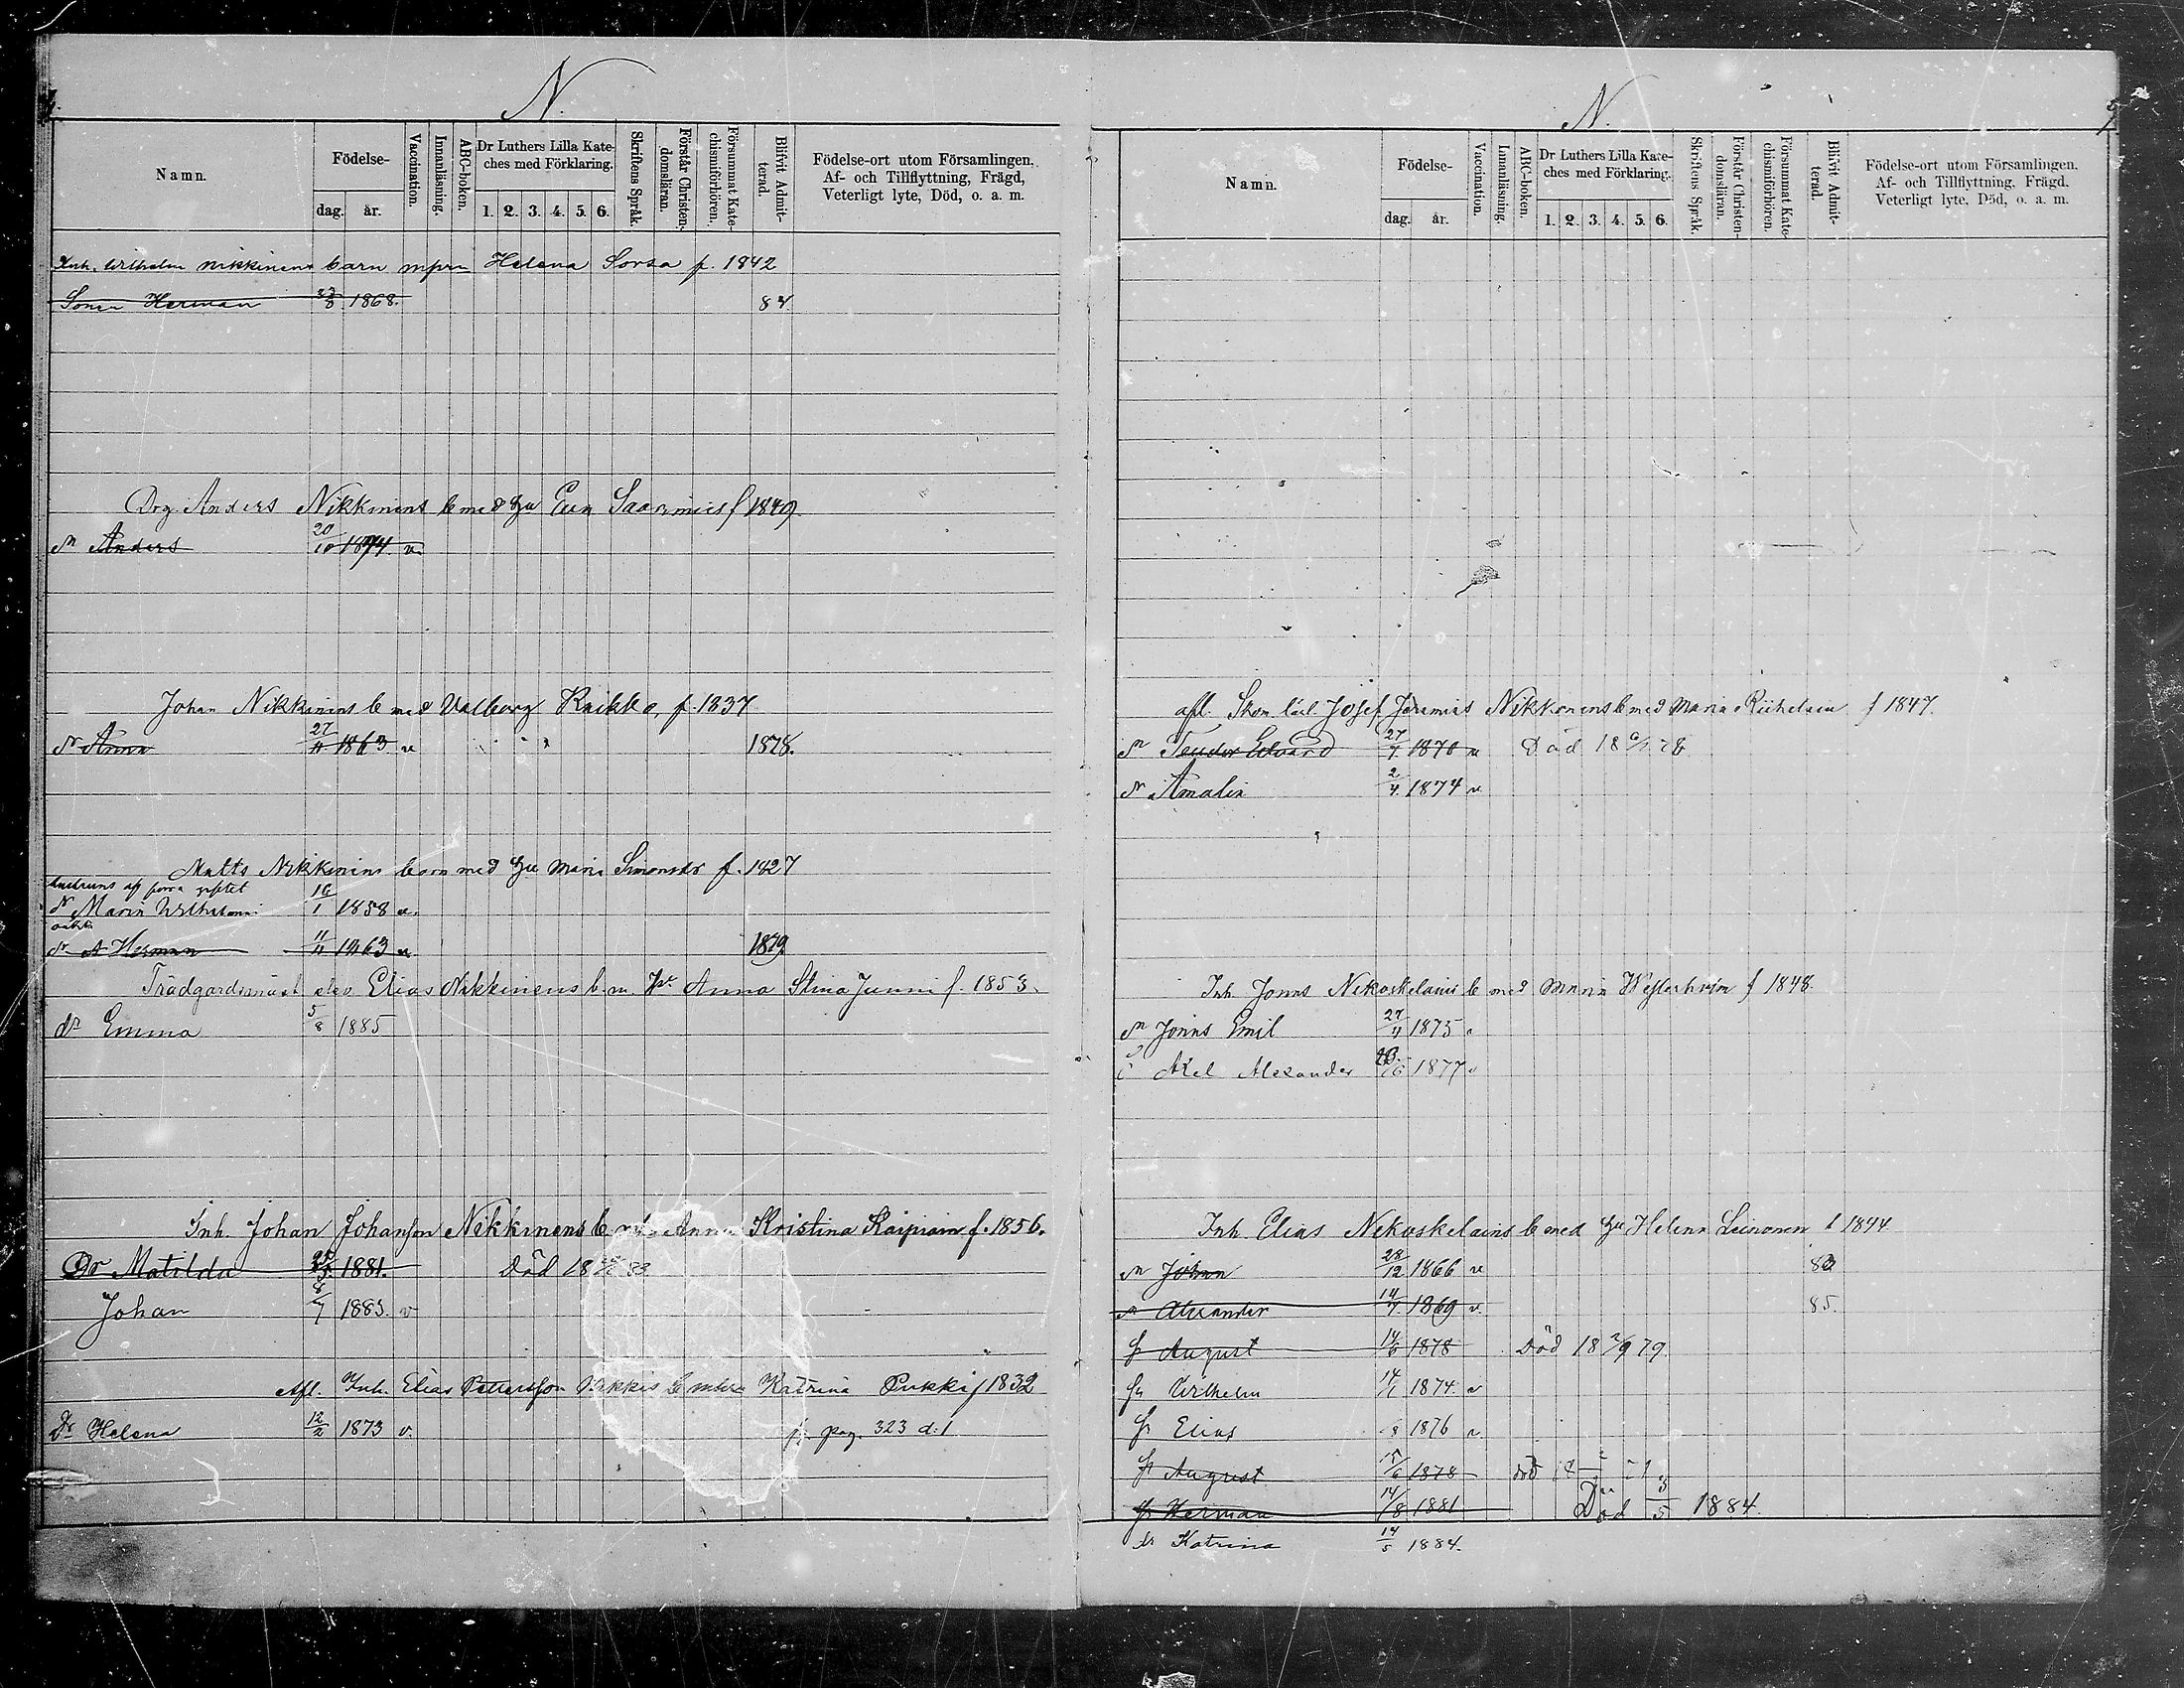 N.
Namn.
Födelse-
dag. år.
Vaccination.
Innanläsning.
ABC-boken.
Dr Luthers Lilla Kate-
ches med Förklaring.
1. 2. 3. 4. 5. 6.
Skriftens Språk.
Förstår Christen-
domsläran.
Försummat Kate-
chismiförhören.
Blifvit Admit-
terad.
Födelse-ort utom Församlingen.
Af- och Tillflyttning, Frägd,
Veterligt lyte, Död, o. a. m.
Inh. Wilhelm Nikkinens barn m Helena Sorsa f. 1842
Sonen Herman 1868. 84.
Drg Anders Nikkinens b med hu Eva Saarimies f 1849
sn Anders 20/10 1874 v.
Johan Nikkinens b med Valborg Kaikko, f. 1837
dr Anna 27/11 1863 v 1878.
Matts Nikkinens barn med hu Maria Simonsdr f. 1827
dr Maria Wilhelmina 16/1 1858 v.
Herman 11/4 1863 v 1879
Trädgårdsmäst elev Elias Nikkinens b. m. Hu Anna Stina Junni f. 1853.
dr Emma 5/8 1885
Inh. Johan Johansson Nikkinens b Anna Kristina Kaipiain f. 1856.
Dr Matilda 1881. Död 18 83
Johan 8/7 1883. v
Afl. Inh. Elias Pettersson b Katrina Pukki f 1832
Dr Helena 12/2 1873 v. fr. pag. 323 d. 1
N.
Namn.
Födelse-
dag. år.
Vaccination.
Innanläsning.
ABC-boken.
Dr Luthers Lilla Kate-
ches med Förklaring.
1. 2. 3. 4. 5. 6.
Skriftens Språk.
Förstår Christen-
domsläran.
Försummat Kate-
chismiförhören.
Blifvit Admit-
terad.
Födelse-ort utom Församlingen.
Af- och Tillflyttning, Frägd.
Veterligt lyte, Död, o. a. m.
afl. Skom Josef Jeremias Nikkonens b med Maria f 1847.
sn Teudor Edvard 27/7 1870 v Död 18 78
dr Amalia 2/4 1874 v
Inh. Jonas Nekoskelains b med Maria Westerholm f 1848.
sn Jonas Emil 27/11 1875 v
Axel Alexander 1877 v
Inh Elias Nekoskelains b med hu Helena Leinonen f 1844
sn Johan 28/12 1866 v
Alexander 14/7 1869 v. 85.
August 14/6 1878 Död 18 2/9 79
Wilhelm 14/1 1874 v
Elias 1876 v
August 15/6 1878 död
Herman 14/8 1881 Död 3/5 1884
dr Katrina 14/5 1884.